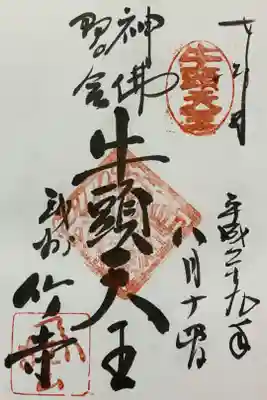 平成二十九年
八月十四日
牛頭天王
神佛
習合
牛頭天王
武州
竹寺